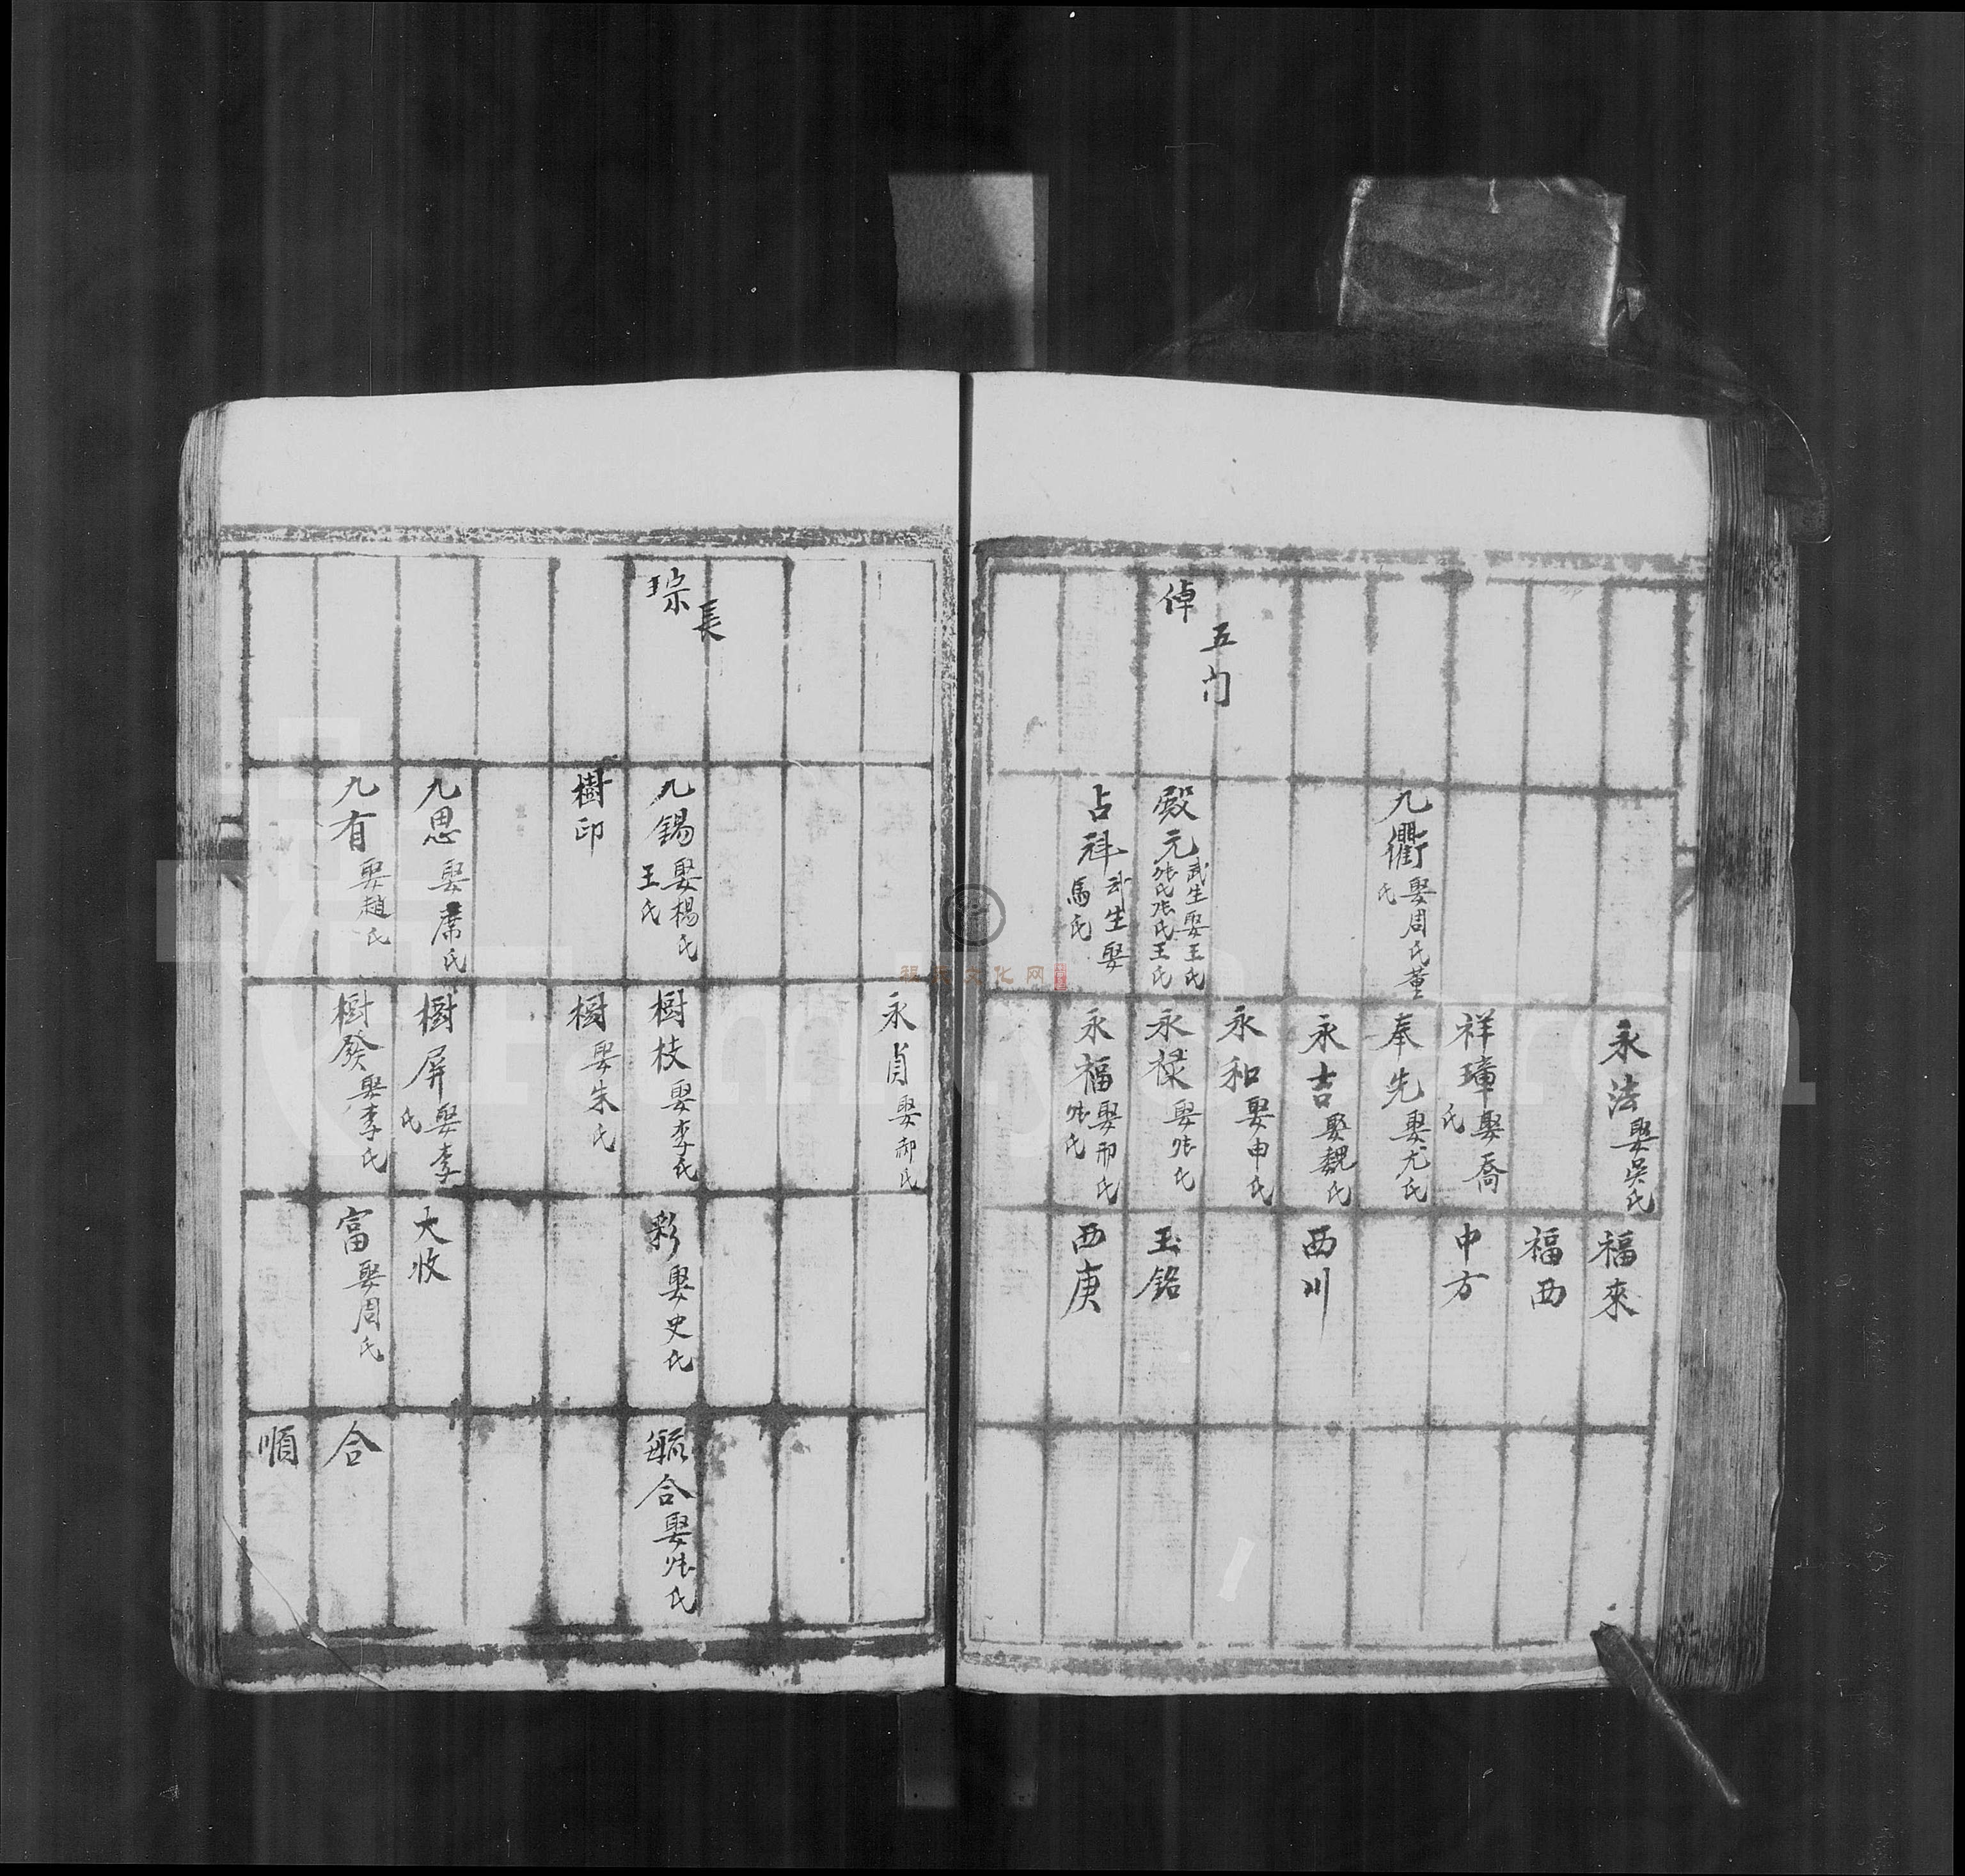 五门
倬
九衢 娶周氏董氏
殿元 武生娶王氏张氏张氏王氏
占科 武生娶馬氏
永法 娶吳氏
祥璋 娶喬氏
奉先 娶尤氏
永吉 娶魏氏
永和 娶申氏
永禄 娶张氏
永福 娶邢氏张氏
福來
福西
中方
西川
玉銘
西庚
長
琮
九錫 娶楊氏王氏
樹印
九思 娶席氏
九有 娶趙氏
永貞 娶郝氏
樹枝 娶李氏
樹 娶朱氏
樹屏 娶李氏
樹發 娶李氏
彩 娶史氏
大收
富 娶周氏
毓合 娶张氏
合
順